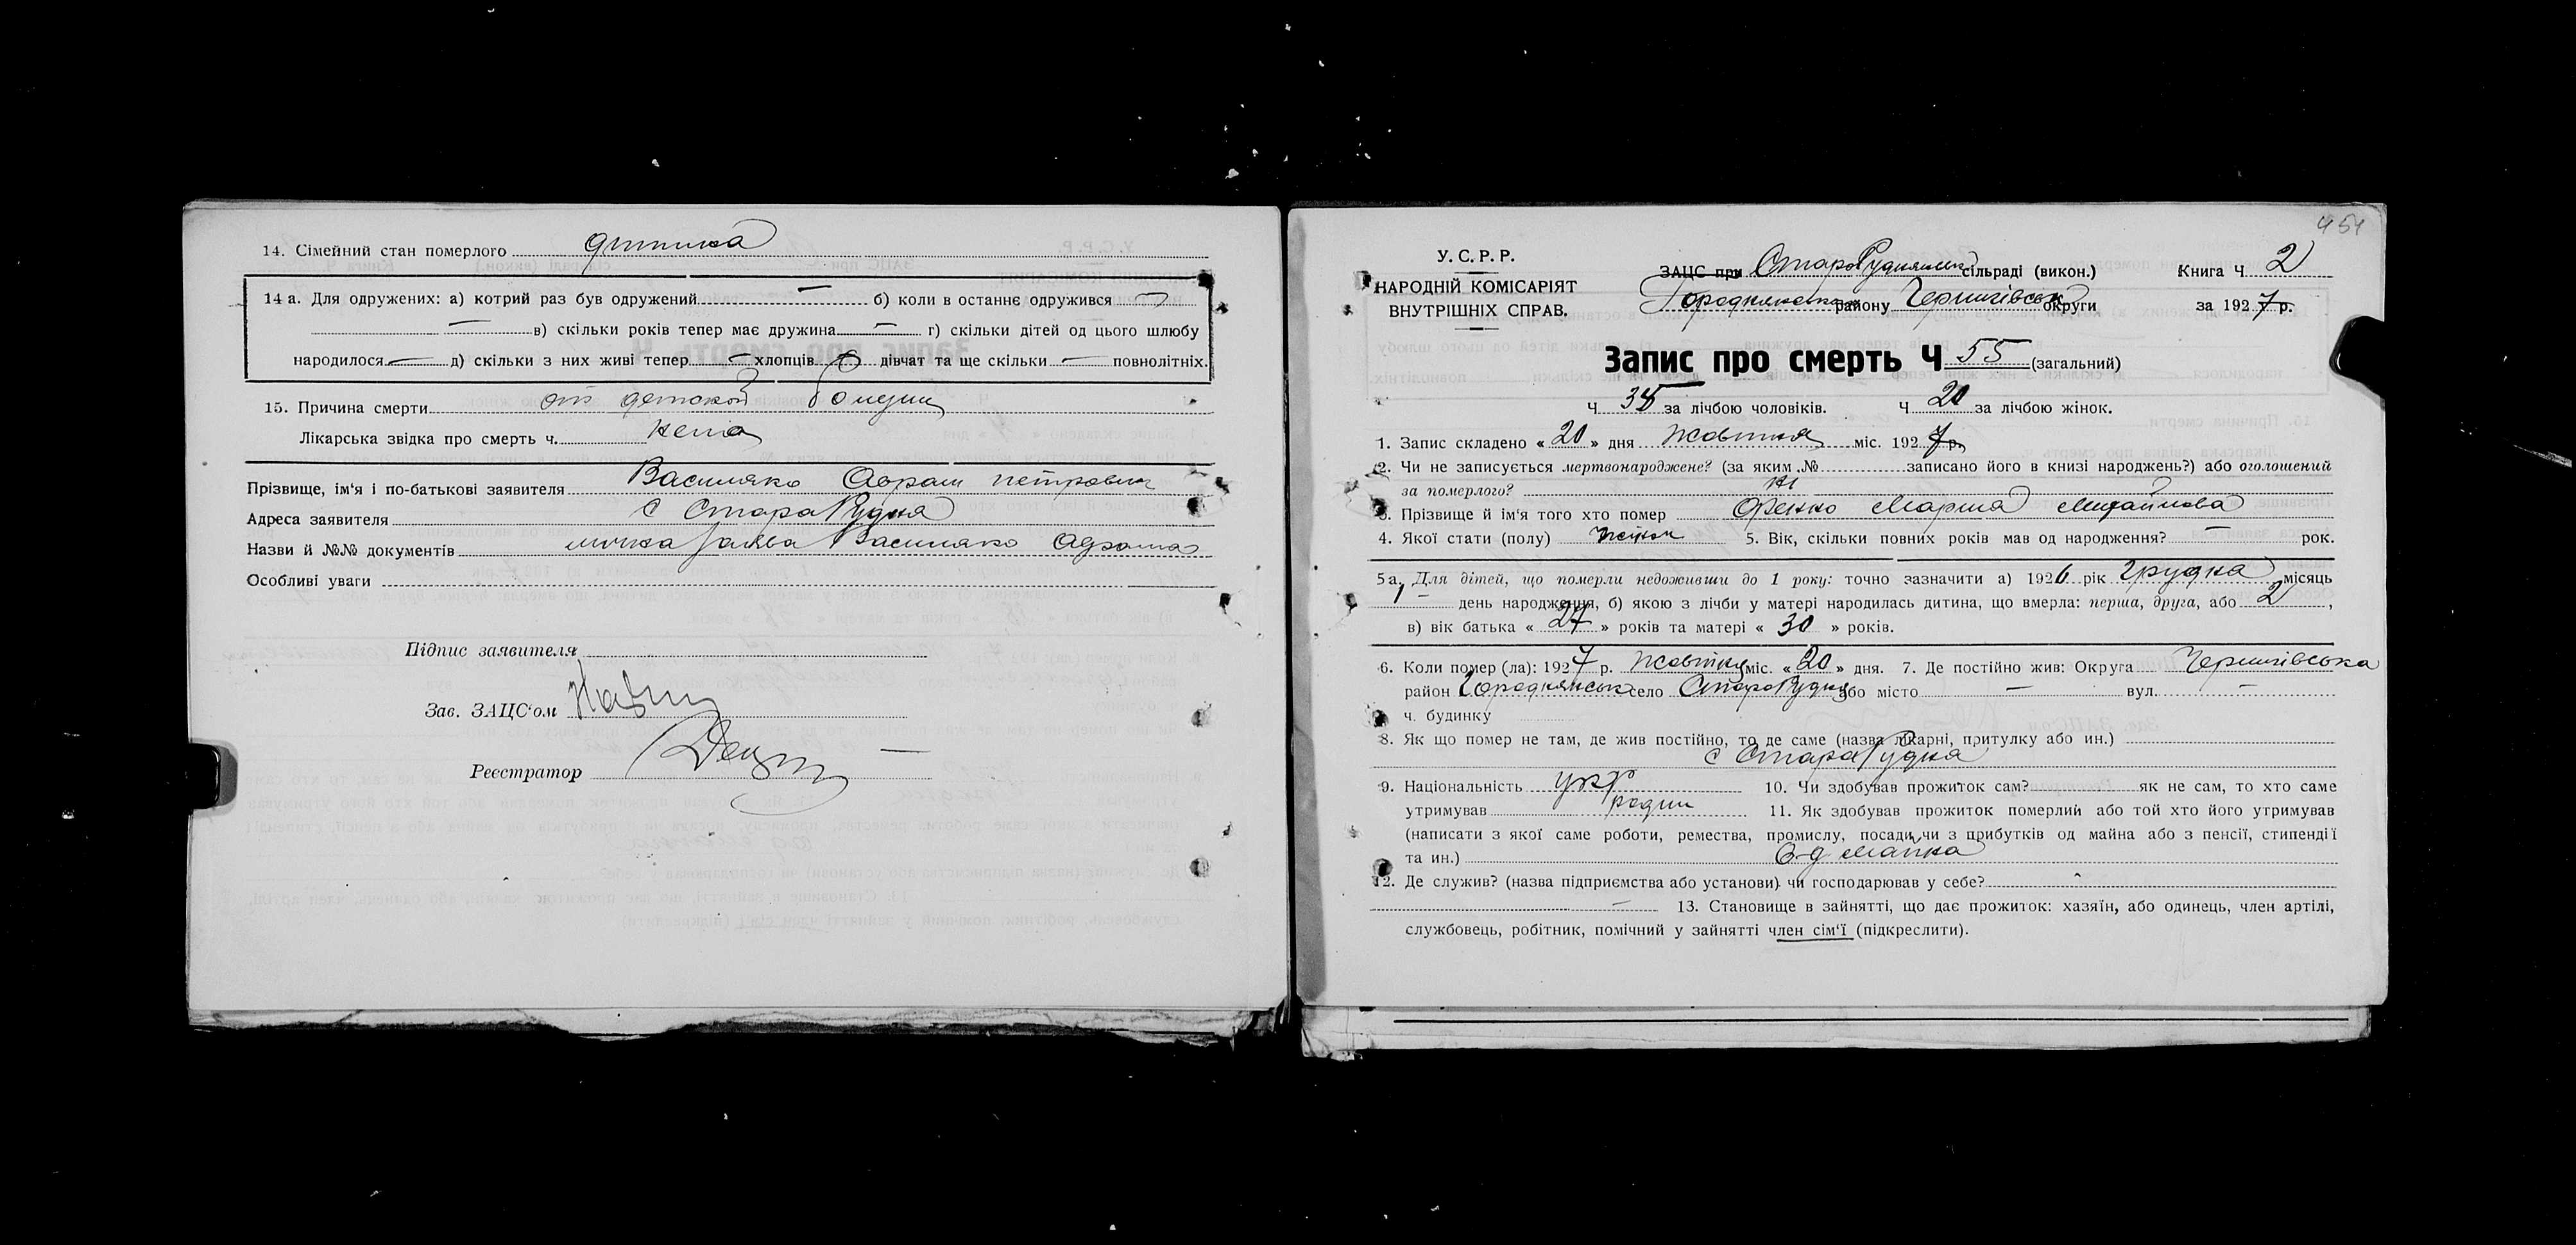 14. Сімейний стан померлого дитина
14 а. Для одружених: а) котрий раз був одружений — б) коли в останнє одружився —
— в) скільки років тепер має дружина — г) скільки дітей од цього шлюбу
народилося — д) скільки з них живі тепер — хлопців — дівчат та ще скільки — повнолітніх.
15. Причина смерти от детской болезни
Лікарська звідка про смерть ч. нема
Прізвище, ім'я і по-батькові заявителя Василяко Абрам петрович
Адреса заявителя с Стара Рудня
Назви й №№ документів заява Василяко
Особливі уваги
Підпис заявителя
Зав. ЗАЦС'ом
Реєстратор
454
У. С. Р. Р.
НАРОДНІЙ КОМІСАРІЯТ
ВНУТРІШНІХ СПРАВ.
ЗАЦС при СтароРуднянськ сільраді (викон.) Книга Ч 2
Городнянського району Чернігівськ округи за 1927 р.
Запис про смерть Ч 55 (загальний)
Ч 35 за лічбою чоловіків. Ч 20 за лічбою жінок.
1. Запис складено « 20 » дня жовтня міс. 1927 р.
2. Чи не записується мертвонароджене? (за яким № записано його в книзі народжень?) або оголошений
за померлого? ні
3. Прізвище й ім'я того хто помер Фенко Мария Михайлова
4. Якої стати (полу) жіноч 5. Вік, скільки повних років мав од народження? — рок.
5 а. Для дітей, що померли недоживши до 1 року: точно зазначити а) 1926 рік Грудня місяць
1 день народження, б) якою з лічби у матері народилась дитина, що вмерла: перша, друга, або 2,
в) вік батька « 27 » років та матері « 30 » років.
6. Коли помер (ла): 1927 р. жовтня міс. « 20 » дня. 7. Де постійно жив: Округа Чернігівська
район Городнянськ село Стара Рудня або місто — вул. —
ч. будинку
8. Як що помер не там, де жив постійно, то де саме (назва лікарні, притулку або ин.)
с Стара Рудня
9. Національність укр 10. Чи здобував прожиток сам? як не сам, то хто саме
утримував родит 11. Як здобував прожиток померлий або той хто його утримував
(написати з якої саме роботи, ремества, промислу, посади, чи з прибутків од майна або з пенсії, стипендії
та ин.) майна
12. Де служив? (назва підприємства або установи) чи господарював у себе?
— 13. Становище в зайнятті, що дає прожиток: хазяїн, або одинець, член артілі,
службовець, робітник, помічний у зайнятті член сім'ї (підкреслити).